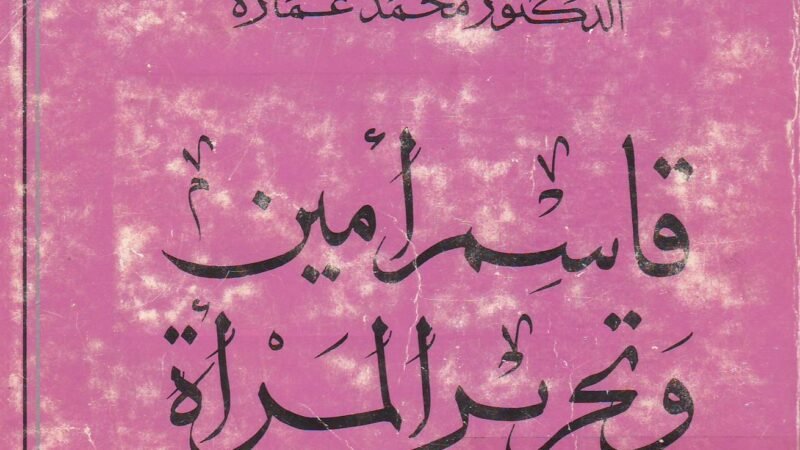 الدكتور محمد عمارة
قاسم أمين
وتحرير المرأة